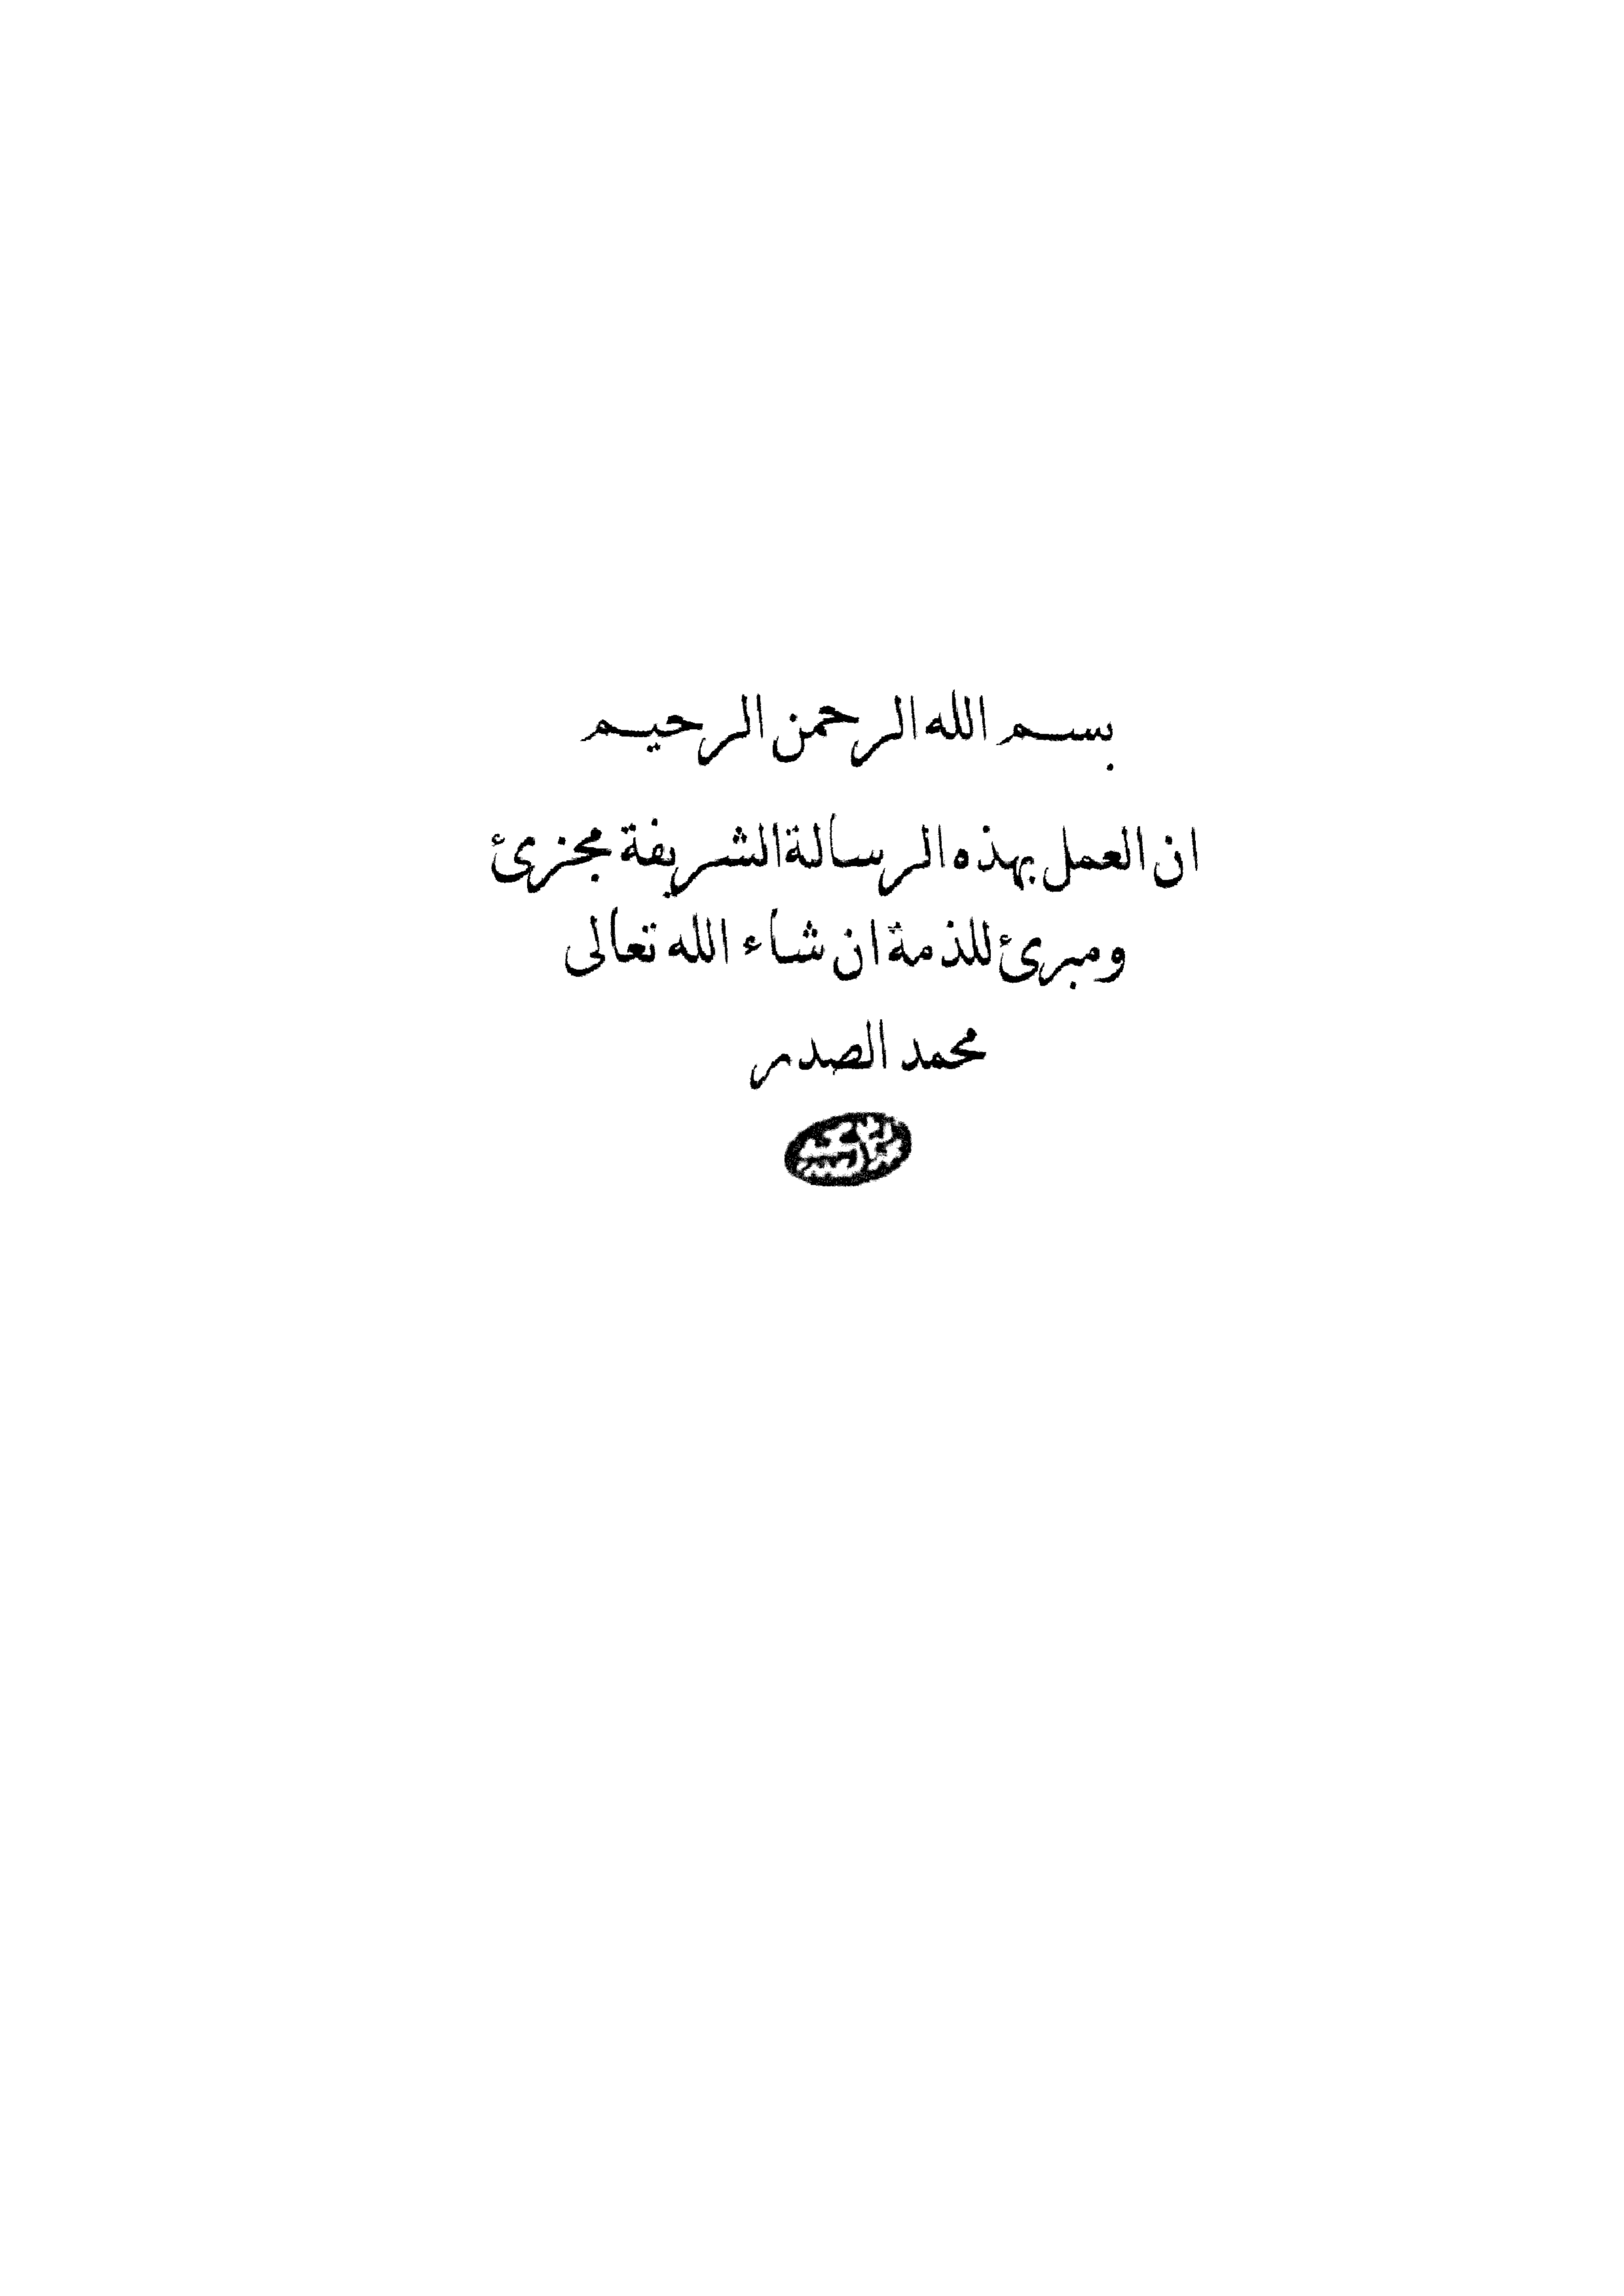 بسم الله الرحمن الرحيم
ان العمل بهذه الرسالة الشريفة مجزئ
ومبرئ للذمة ان شاء الله تعالى
محمد الصدر